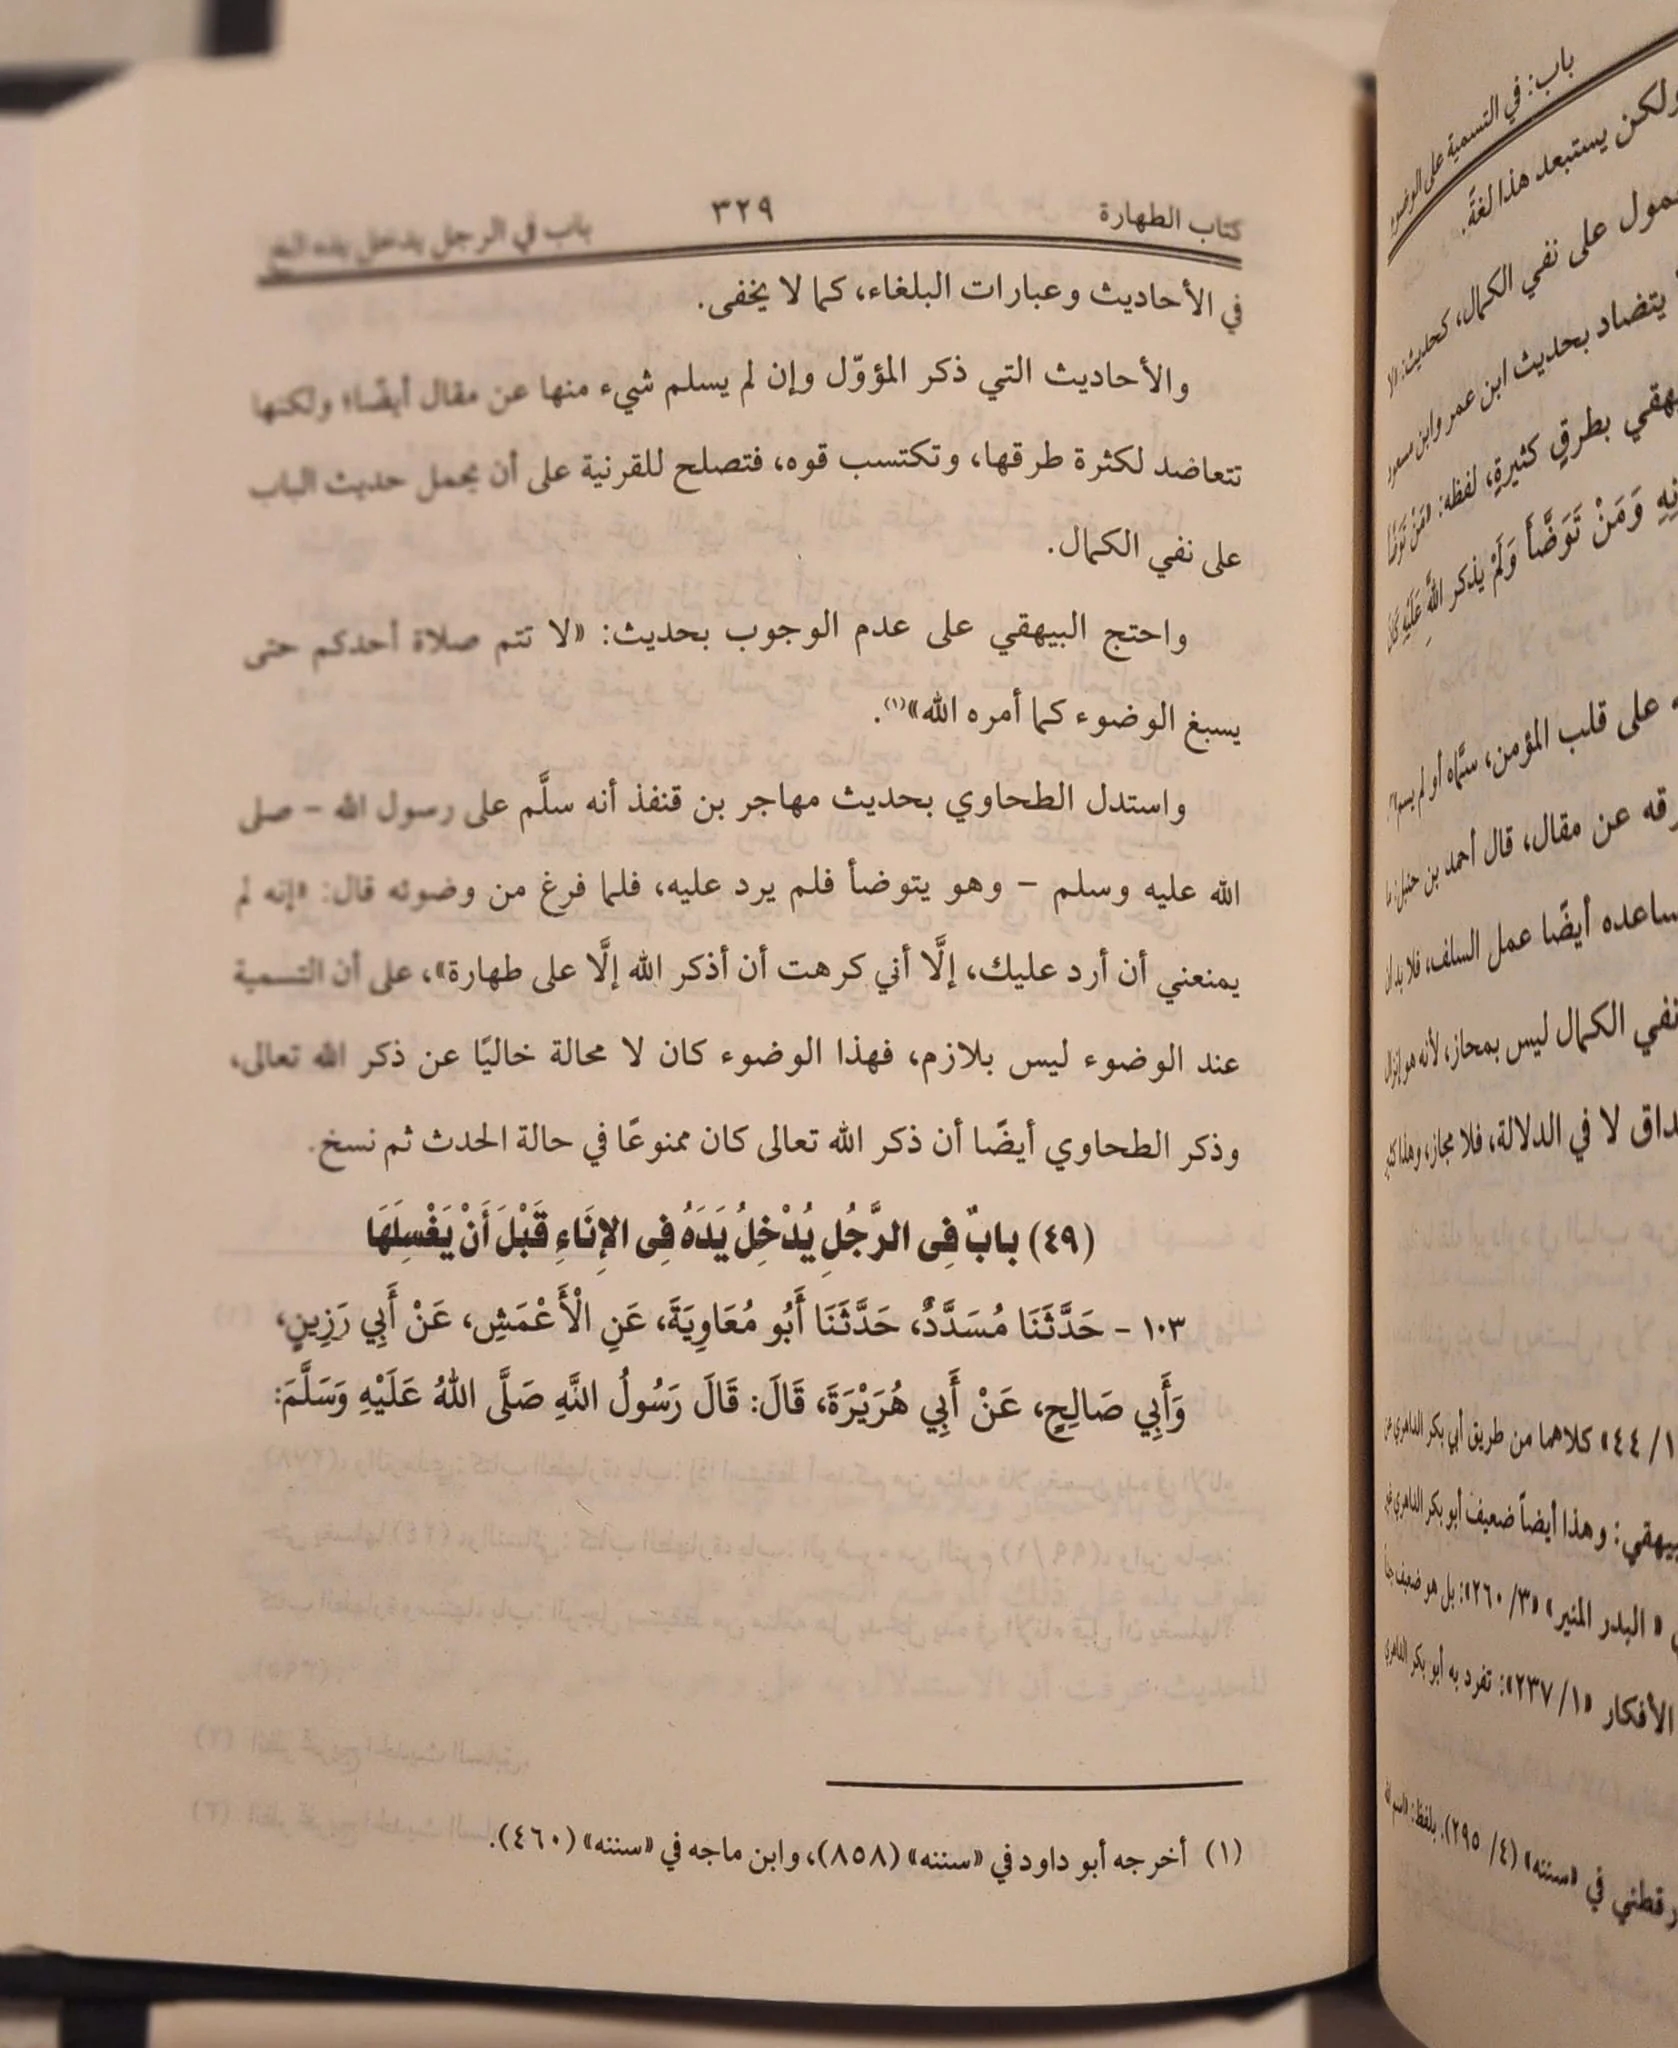 كتاب الطهارة ٣٢٩ باب في الرجل يدخل يده الخ
في الأحاديث وعبارات البلغاء، كما لا يخفى.
والأحاديث التي ذكر المؤوّل وإن لم يسلم شيء منها عن مقال أيضًا؛ ولكنها
تتعاضد لكثرة طرقها، وتكتسب قوه، فتصلح للقرنية على أن يحمل حديث الباب
على نفي الكمال.
واحتج البيهقي على عدم الوجوب بحديث: «لا تتم صلاة أحدكم حتى
يسبغ الوضوء كما أمره الله»(١).
واستدل الطحاوي بحديث مهاجر بن قنفذ أنه سلَّم على رسول الله – صلى
الله عليه وسلم – وهو يتوضأ فلم يرد عليه، فلما فرغ من وضوئه قال: «إنه لم
يمنعني أن أرد عليك، إلَّا أني كرهت أن أذكر الله إلَّا على طهارة»، على أن التسمية
عند الوضوء ليس بلازم، فهذا الوضوء كان لا محالة خاليًا عن ذكر الله تعالى،
وذكر الطحاوي أيضًا أن ذكر الله تعالى كان ممنوعًا في حالة الحدث ثم نسخ.
(٤٩) بابٌ فِي الرَّجُلِ يُدْخِلُ يَدَهُ فِي الإِنَاءِ قَبْلَ أَنْ يَغْسِلَهَا
١٠٣ – حَدَّثَنَا مُسَدَّدٌ، حَدَّثَنَا أَبُو مُعَاوِيَةَ، عَنِ الْأَعْمَشِ، عَنْ أَبِي رَزِينٍ،
وَأَبِي صَالِحٍ، عَنْ أَبِي هُرَيْرَةَ، قَالَ: قَالَ رَسُولُ اللَّهِ صَلَّى اللهُ عَلَيْهِ وَسَلَّمَ:
(١) أخرجه أبو داود في «سننه» (٨٥٨)، وابن ماجه في «سننه» (٤٦٠).
باب: في التسمية على الوضوء
ولكن يستبعد هذا لغةً.
على نفي الكمال، كحديث: «لا
يتضاد بحديث ابن عمر وابن مسعود
بطرقٍ كثيرةٍ، لفظه: «مَنْ تَوَضَّأَ
وَمَنْ تَوَضَّأَ وَلَمْ يذكر اللهِ عَلَيْهِ كَانَ
على قلب المؤمن، سمَّاه أو لم يسم»
عن مقال، قال أحمد بن حنبل: ما
أيضًا عمل السلف، فلا بد أن
نفي الكمال ليس بمجاز، لأنه هو إنزال
لا في الدلالة، فلا مجاز، وهذا كثير
٤٤/١» كلاهما من طريق أبي بكر الداهري عن
وهذا أيضاً ضعيف أبو بكر الداهري غير
«البدر المنير» «٢٦٠/٣»: بل هو ضعيف جداً
الأفكار «٢٣٧/١»: تفرد به أبو بكر الداهري
في «سننه» (٤/ ٢٩٥). بلفظ: «اسم الله